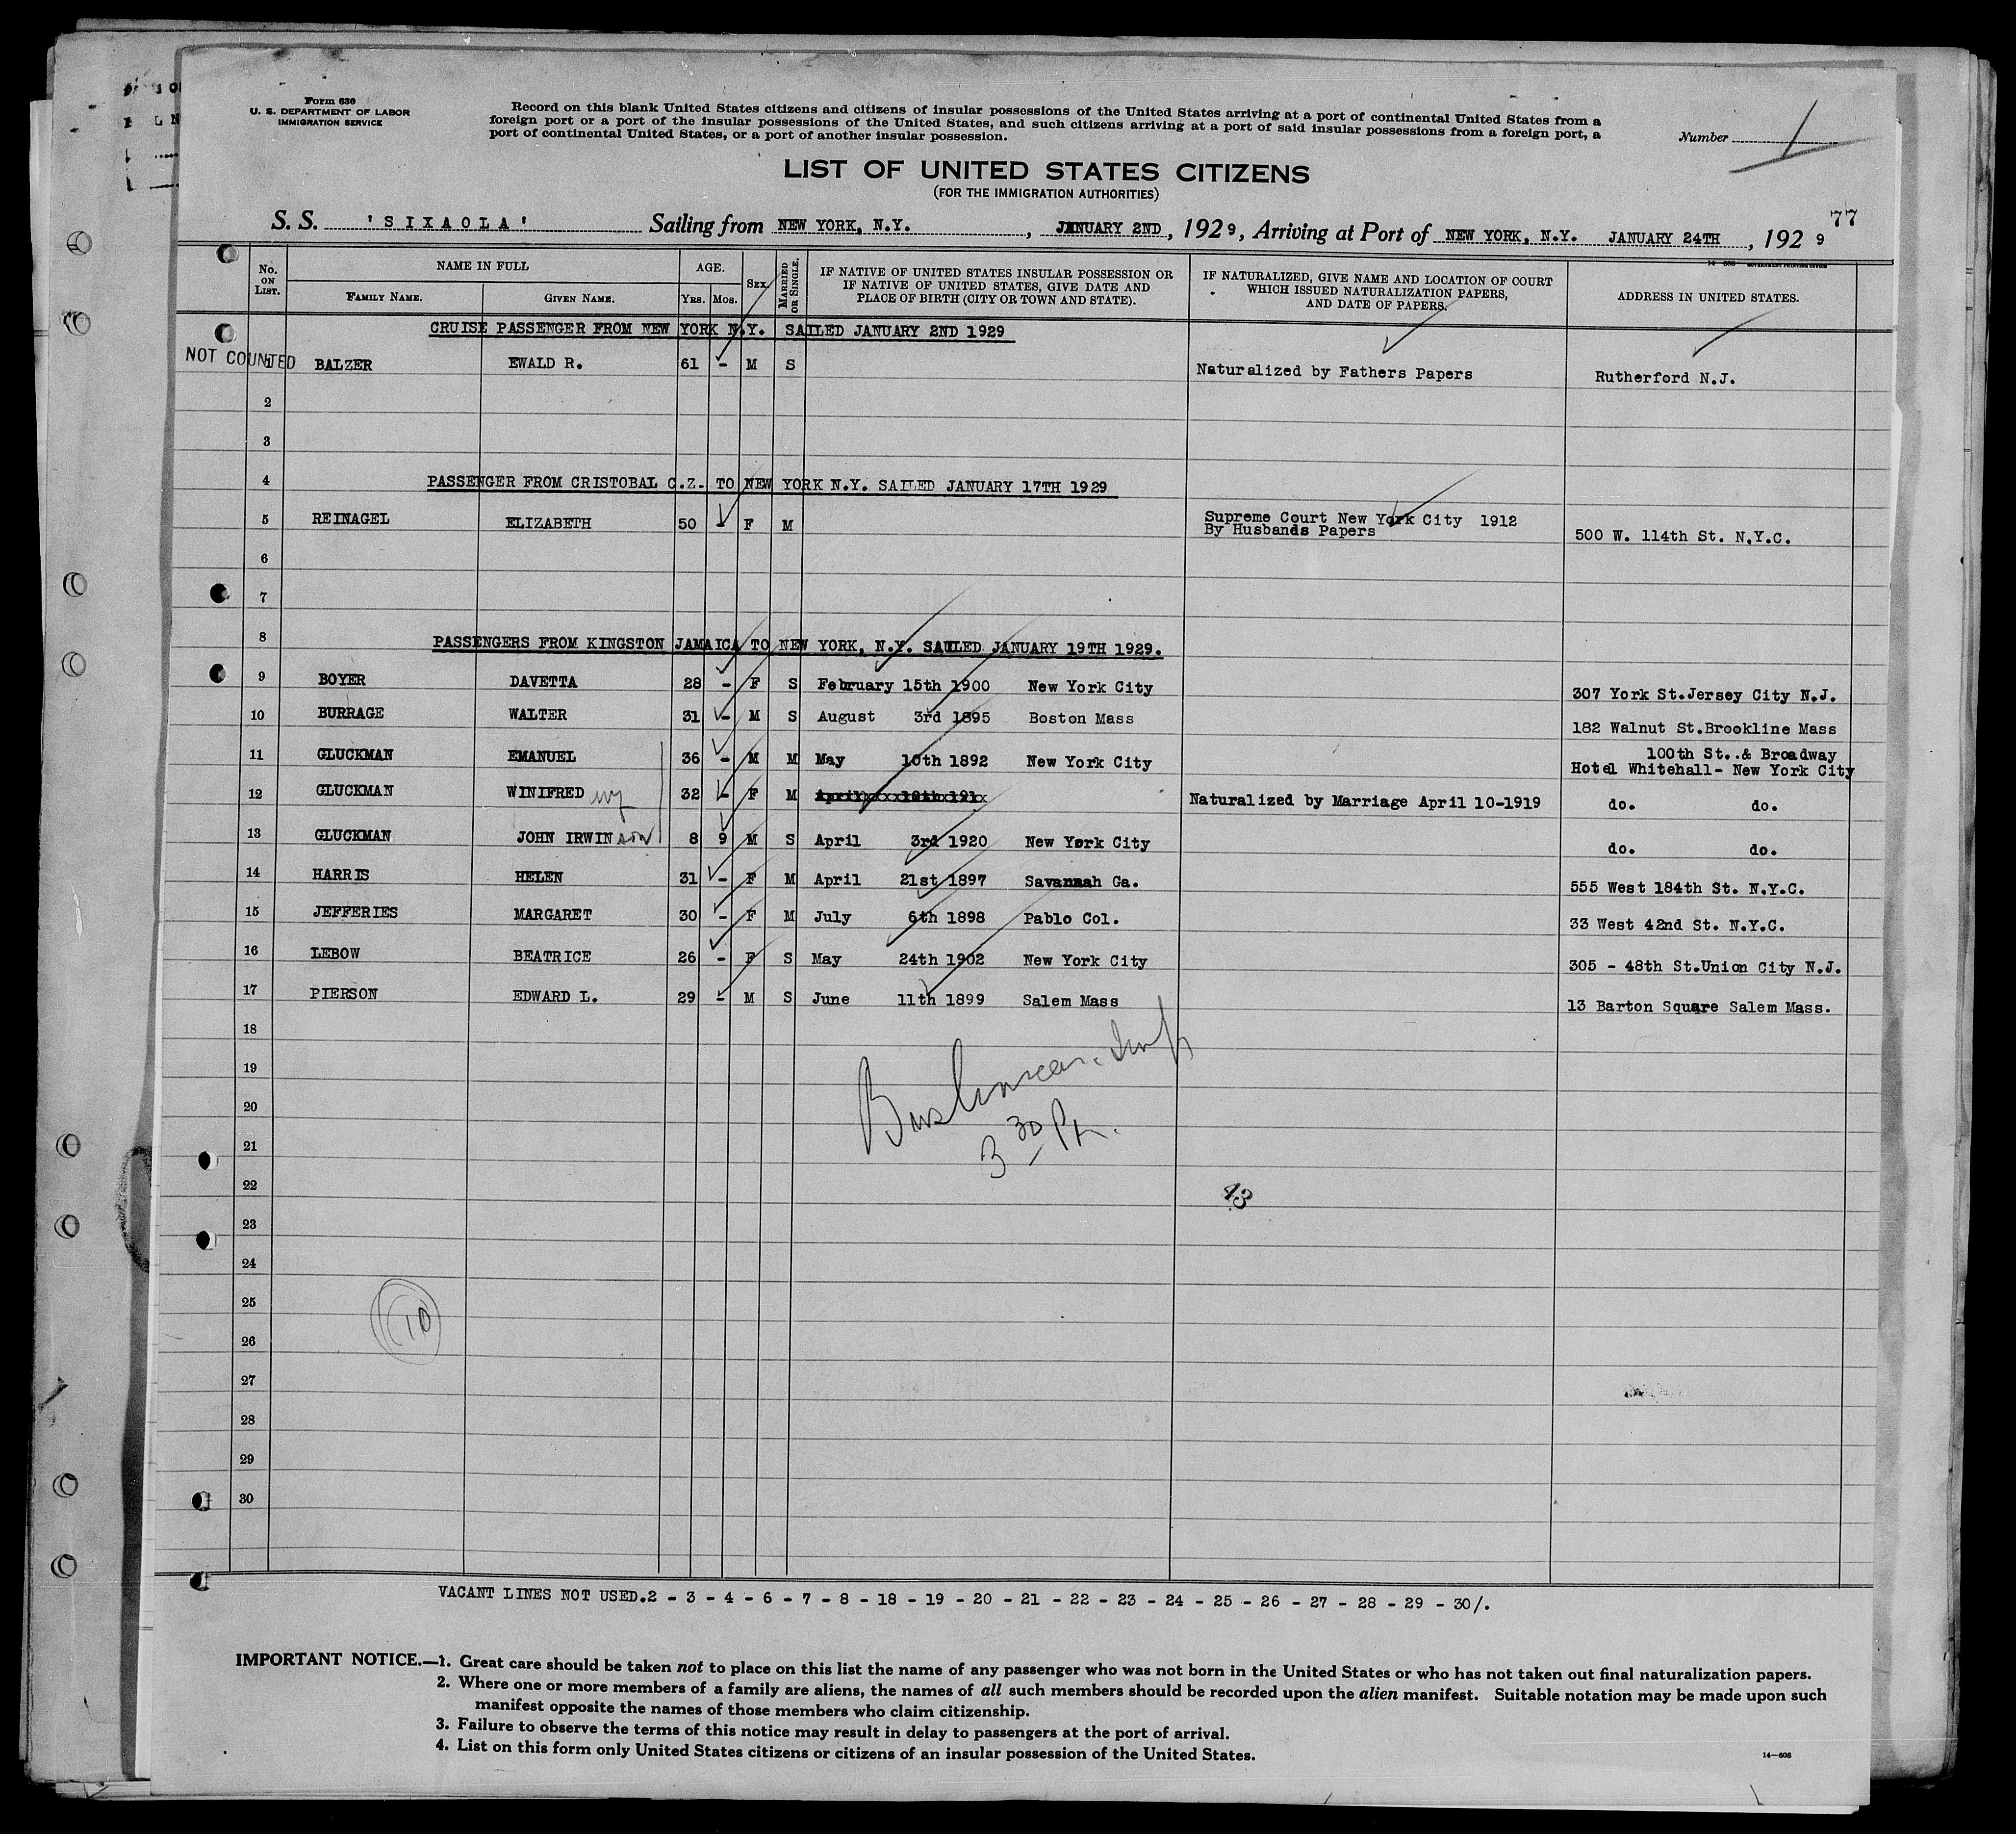 Form 630
U. S. DEPARTMENT OF LABOR
IMMIGRATION SERVICE
Record on this blank United States citizens and citizens of insular possessions of the United States arriving at a port of continental United States from a
foreign port or a port of the insular possessions of the United States, and such citizens arriving at a port of said insular possessions from a foreign port, a
port of continental United States, or a port of another insular possession.
Number 1
LIST OF UNITED STATES CITIZENS
(FOR THE IMMIGRATION AUTHORITIES)
77
S. S. 'SIXAOLA' Sailing from NEW YORK, N.Y. , JANUARY 2ND , 1929, Arriving at Port of NEW YORK, N.Y. JANUARY 24TH , 1929
No. ON LIST. NAME IN FULL FAMILY NAME. GIVEN NAME. AGE. YRS. MOS. SEX MARRIED OR SINGLE. IF NATIVE OF UNITED STATES INSULAR POSSESSION OR IF NATIVE OF UNITED STATES, GIVE DATE AND PLACE OF BIRTH (CITY OR TOWN AND STATE). IF NATURALIZED, GIVE NAME AND LOCATION OF COURT WHICH ISSUED NATURALIZATION PAPERS, AND DATE OF PAPERS. ADDRESS IN UNITED STATES.
CRUISE PASSENGER FROM NEW YORK N.Y. SAILED JANUARY 2ND 1929
NOT COUNTED 1 BALZER EWALD R. 61 - M S Naturalized by Fathers Papers Rutherford N.J.
2
3
4 PASSENGER FROM CRISTOBAL C.Z. TO NEW YORK N.Y. SAILED JANUARY 17TH 1929
5 REINAGEL ELIZABETH 50 - F M Supreme Court New York City 1912 By Husbands Papers 500 W. 114th St. N.Y.C.
6
7
8 PASSENGERS FROM KINGSTON JAMAICA TO NEW YORK, N.Y. SAILED JANUARY 19TH 1929.
9 BOYER DAVETTA 28 - F S February 15th 1900 New York City 307 York St.Jersey City N.J.
10 BURRAGE WALTER 31 - M S August 3rd 1895 Boston Mass 182 Walnut St.Brookline Mass
11 GLUCKMAN EMANUEL 36 - M M May 10th 1892 New York City 100th St..& Broadway Hotel Whitehall- New York City
12 GLUCKMAN WINIFRED wf 32 - F M Naturalized by Marriage April 10-1919 do. do.
13 GLUCKMAN JOHN IRWIN son 8 9 M S April 3rd 1920 New York City do. do.
14 HARRIS HELEN 31 - F M April 21st 1897 Savannah Ga. 555 West 184th St. N.Y.C.
15 JEFFERIES MARGARET 30 - F M July 6th 1898 Pablo Col. 33 West 42nd St. N.Y.C.
16 LEBOW BEATRICE 26 - F S May 24th 1902 New York City 305 - 48th St.Union City N.J.
17 PIERSON EDWARD L. 29 - M S June 11th 1899 Salem Mass 13 Barton Square Salem Mass.
18
19
20
3 30 Pm.
21
22 13
23
24
25
10
26
27
28
29
30
VACANT LINES NOT USED.2 - 3 - 4 - 6 - 7 - 8 - 18 - 19 - 20 - 21 - 22 - 23 - 24 - 25 - 26 - 27 - 28 - 29 - 30/.
IMPORTANT NOTICE.—1. Great care should be taken not to place on this list the name of any passenger who was not born in the United States or who has not taken out final naturalization papers.
2. Where one or more members of a family are aliens, the names of all such members should be recorded upon the alien manifest. Suitable notation may be made upon such
manifest opposite the names of those members who claim citizenship.
3. Failure to observe the terms of this notice may result in delay to passengers at the port of arrival.
4. List on this form only United States citizens or citizens of an insular possession of the United States.
14—608